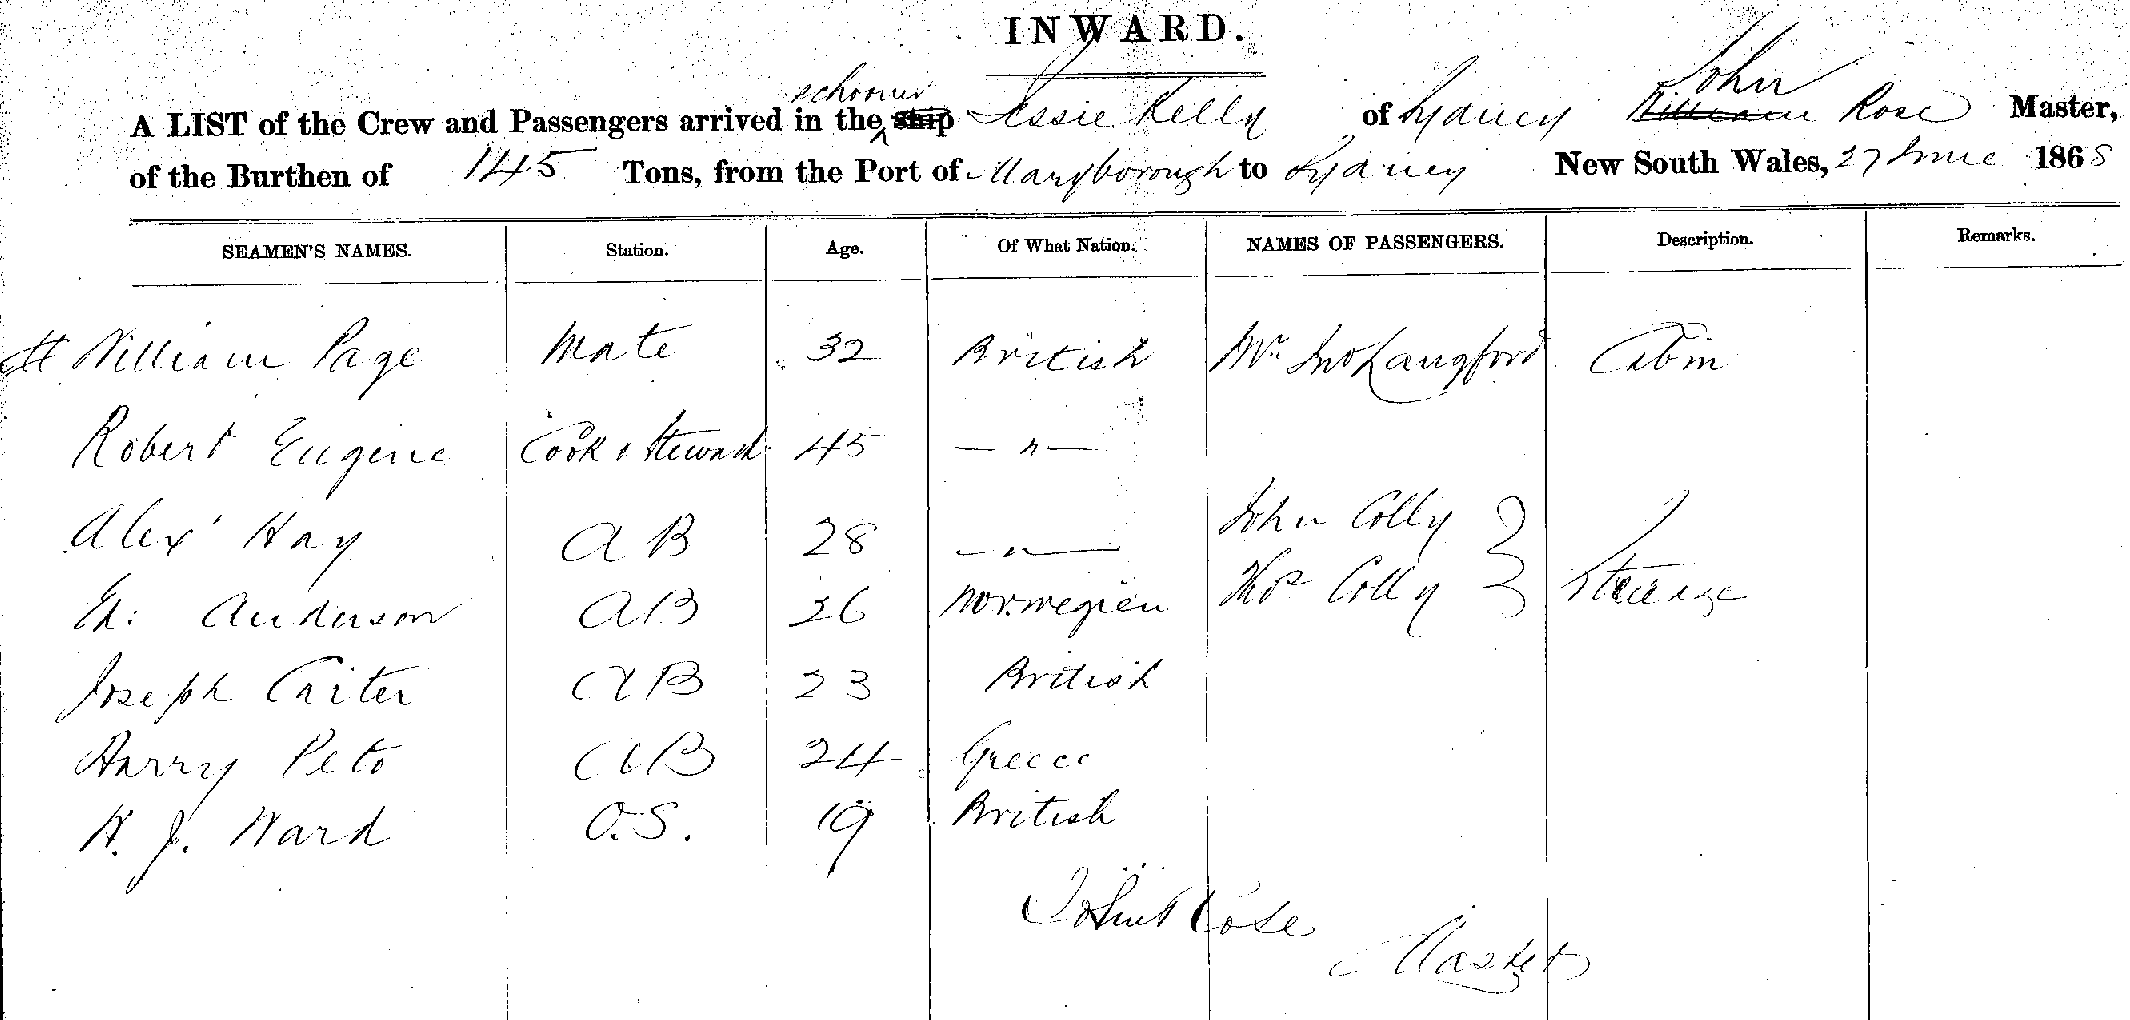 INWARD.
schooner
John
A LIST of the Crew and Passengers arrived in the ship Jessie Kelly of Sydney William Rose Master,
of the Burthen of 145 Tons, from the Port of Maryborough to Sydney New South Wales, 27 June 1868
SEAMEN'S NAMES. Station. Age. Of What Nation. NAMES OF PASSENGERS. Description. Remarks.
William Page Mate 32 British Mr Jno Langford Cabin
Robert Eugene Cook & Steward 45 — " —
Alexr Hay AB 28 — " — John Colly
Ed: Anderson AB 26 Norwegien Thos Colly Steerage
Joseph Carter AB 23 British
Harry Peto AB 24 Greece
W. J. Ward O.S. 19 British
John Rose
Master